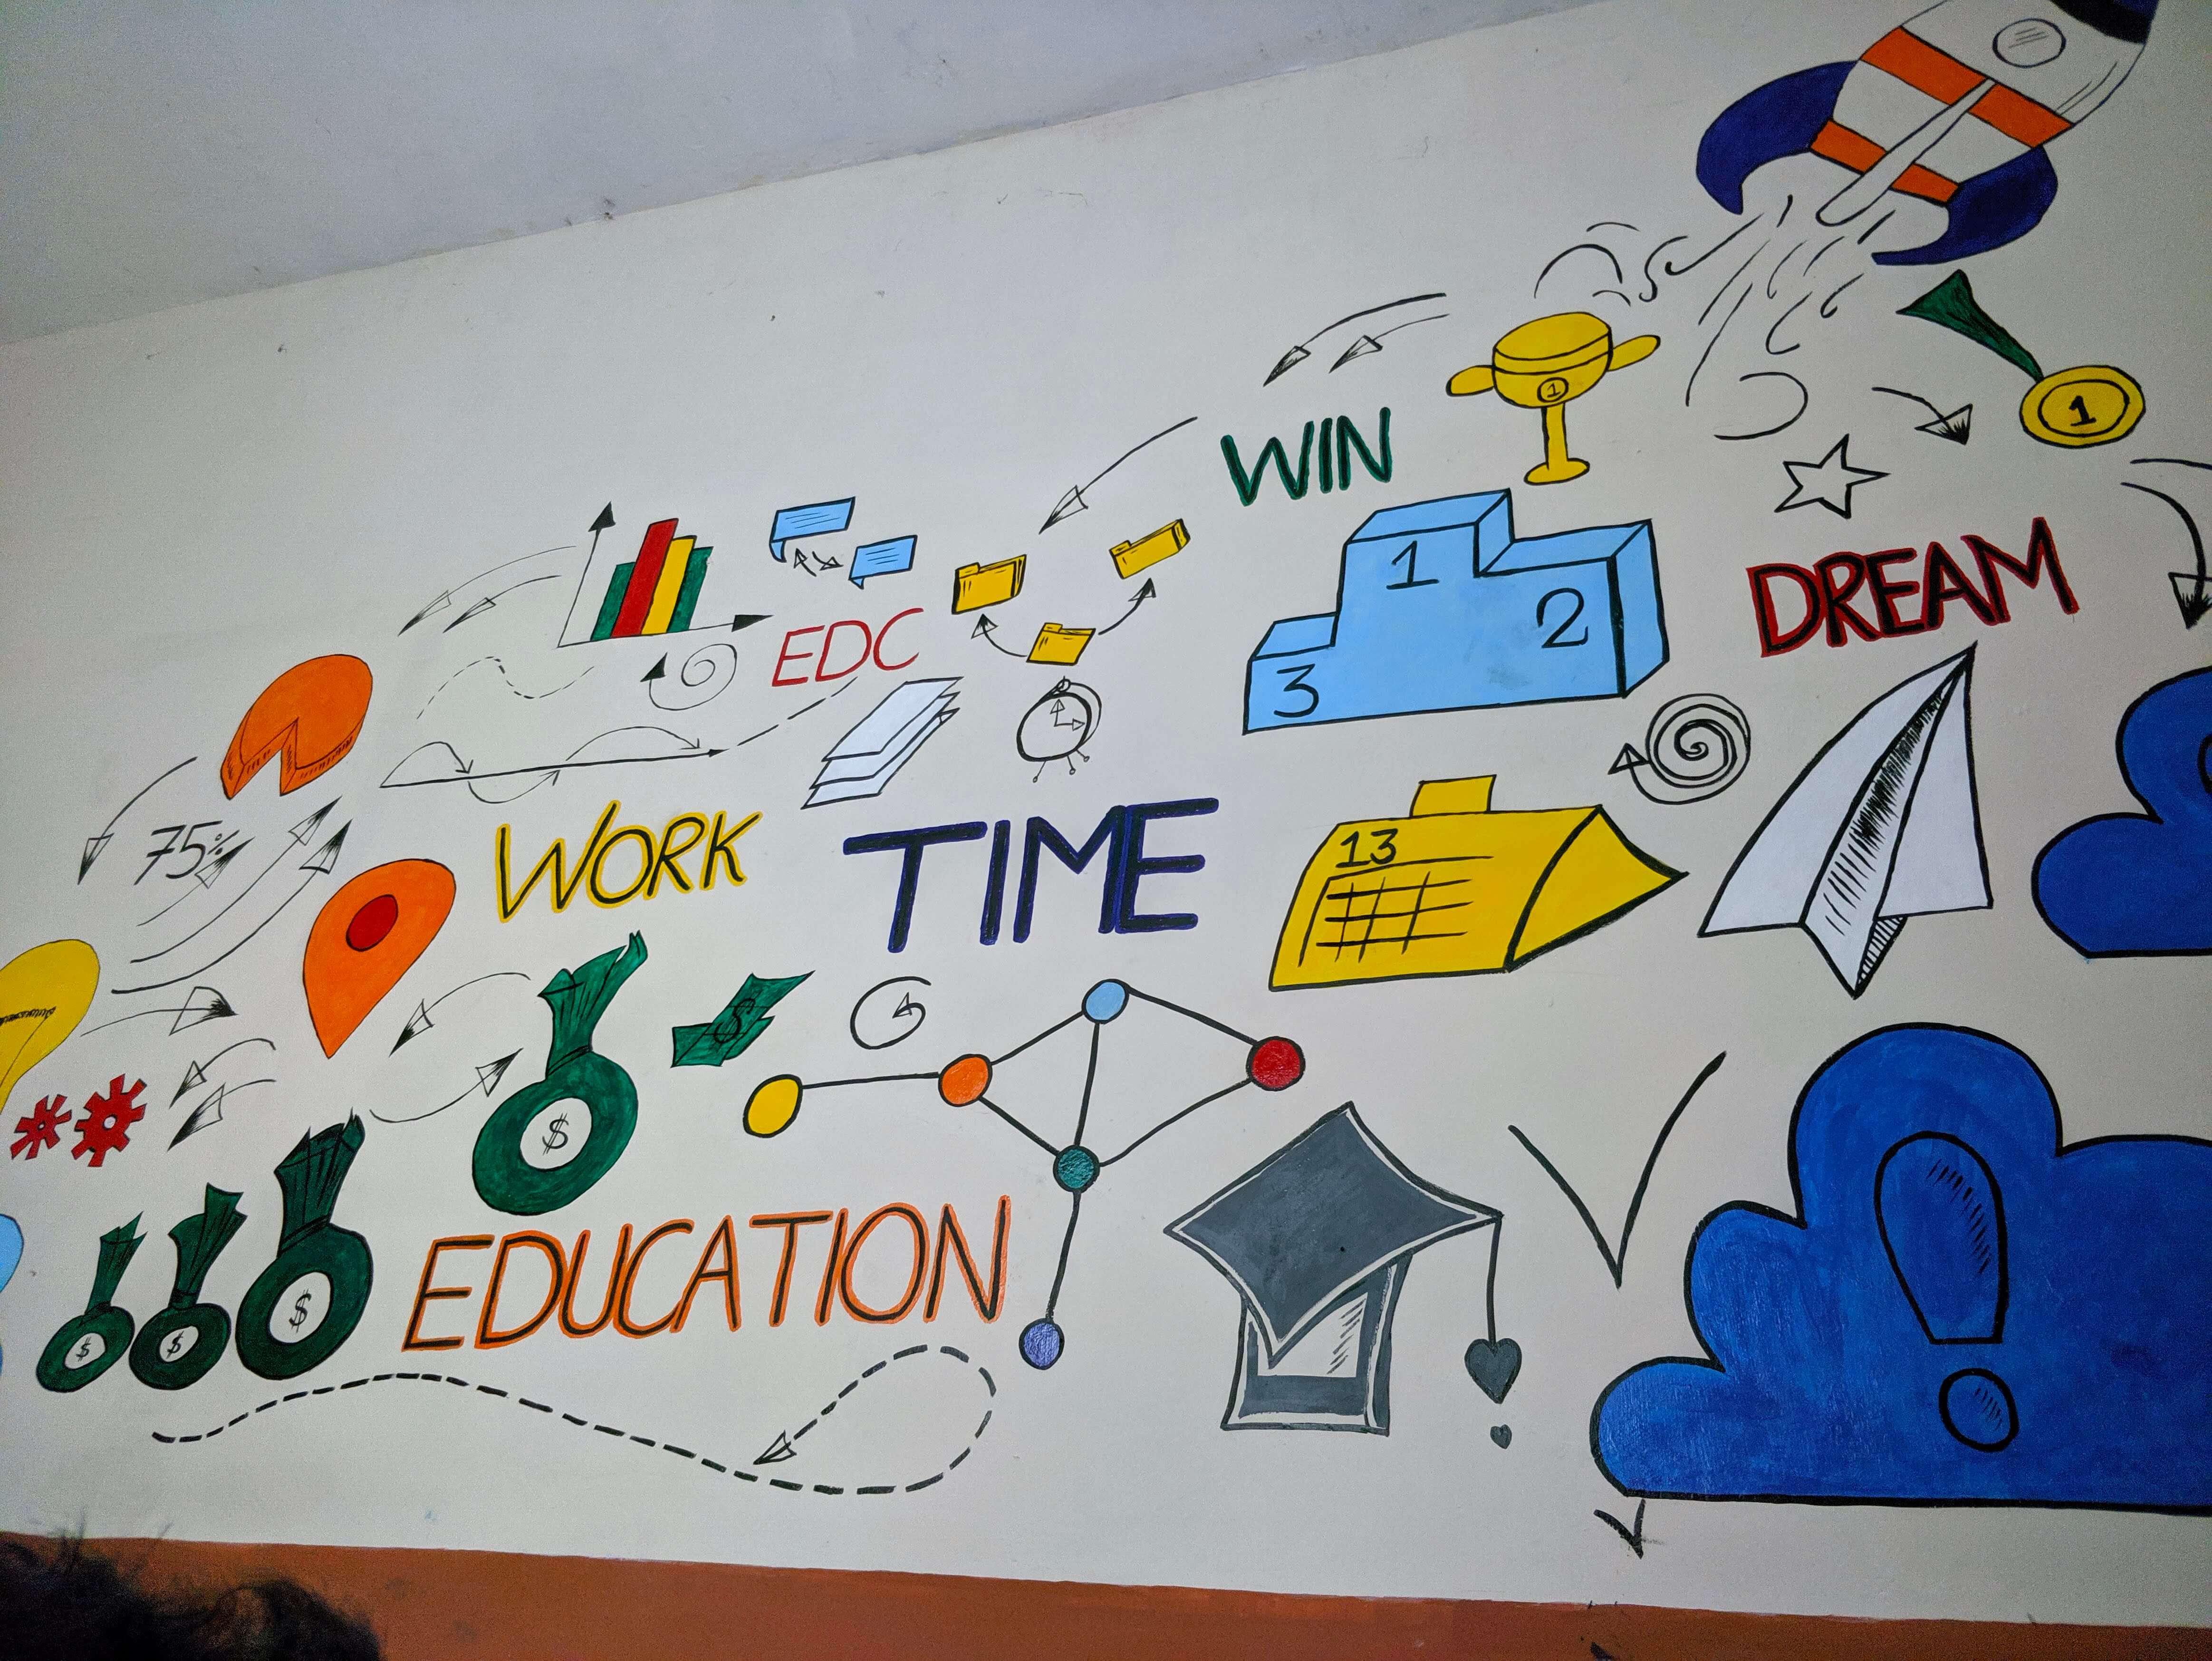 1
1
WIN
1
2
3
DREAM
EDC
75%
WORK
TIME
13
$
$
EDUCATION
$
$
$
!